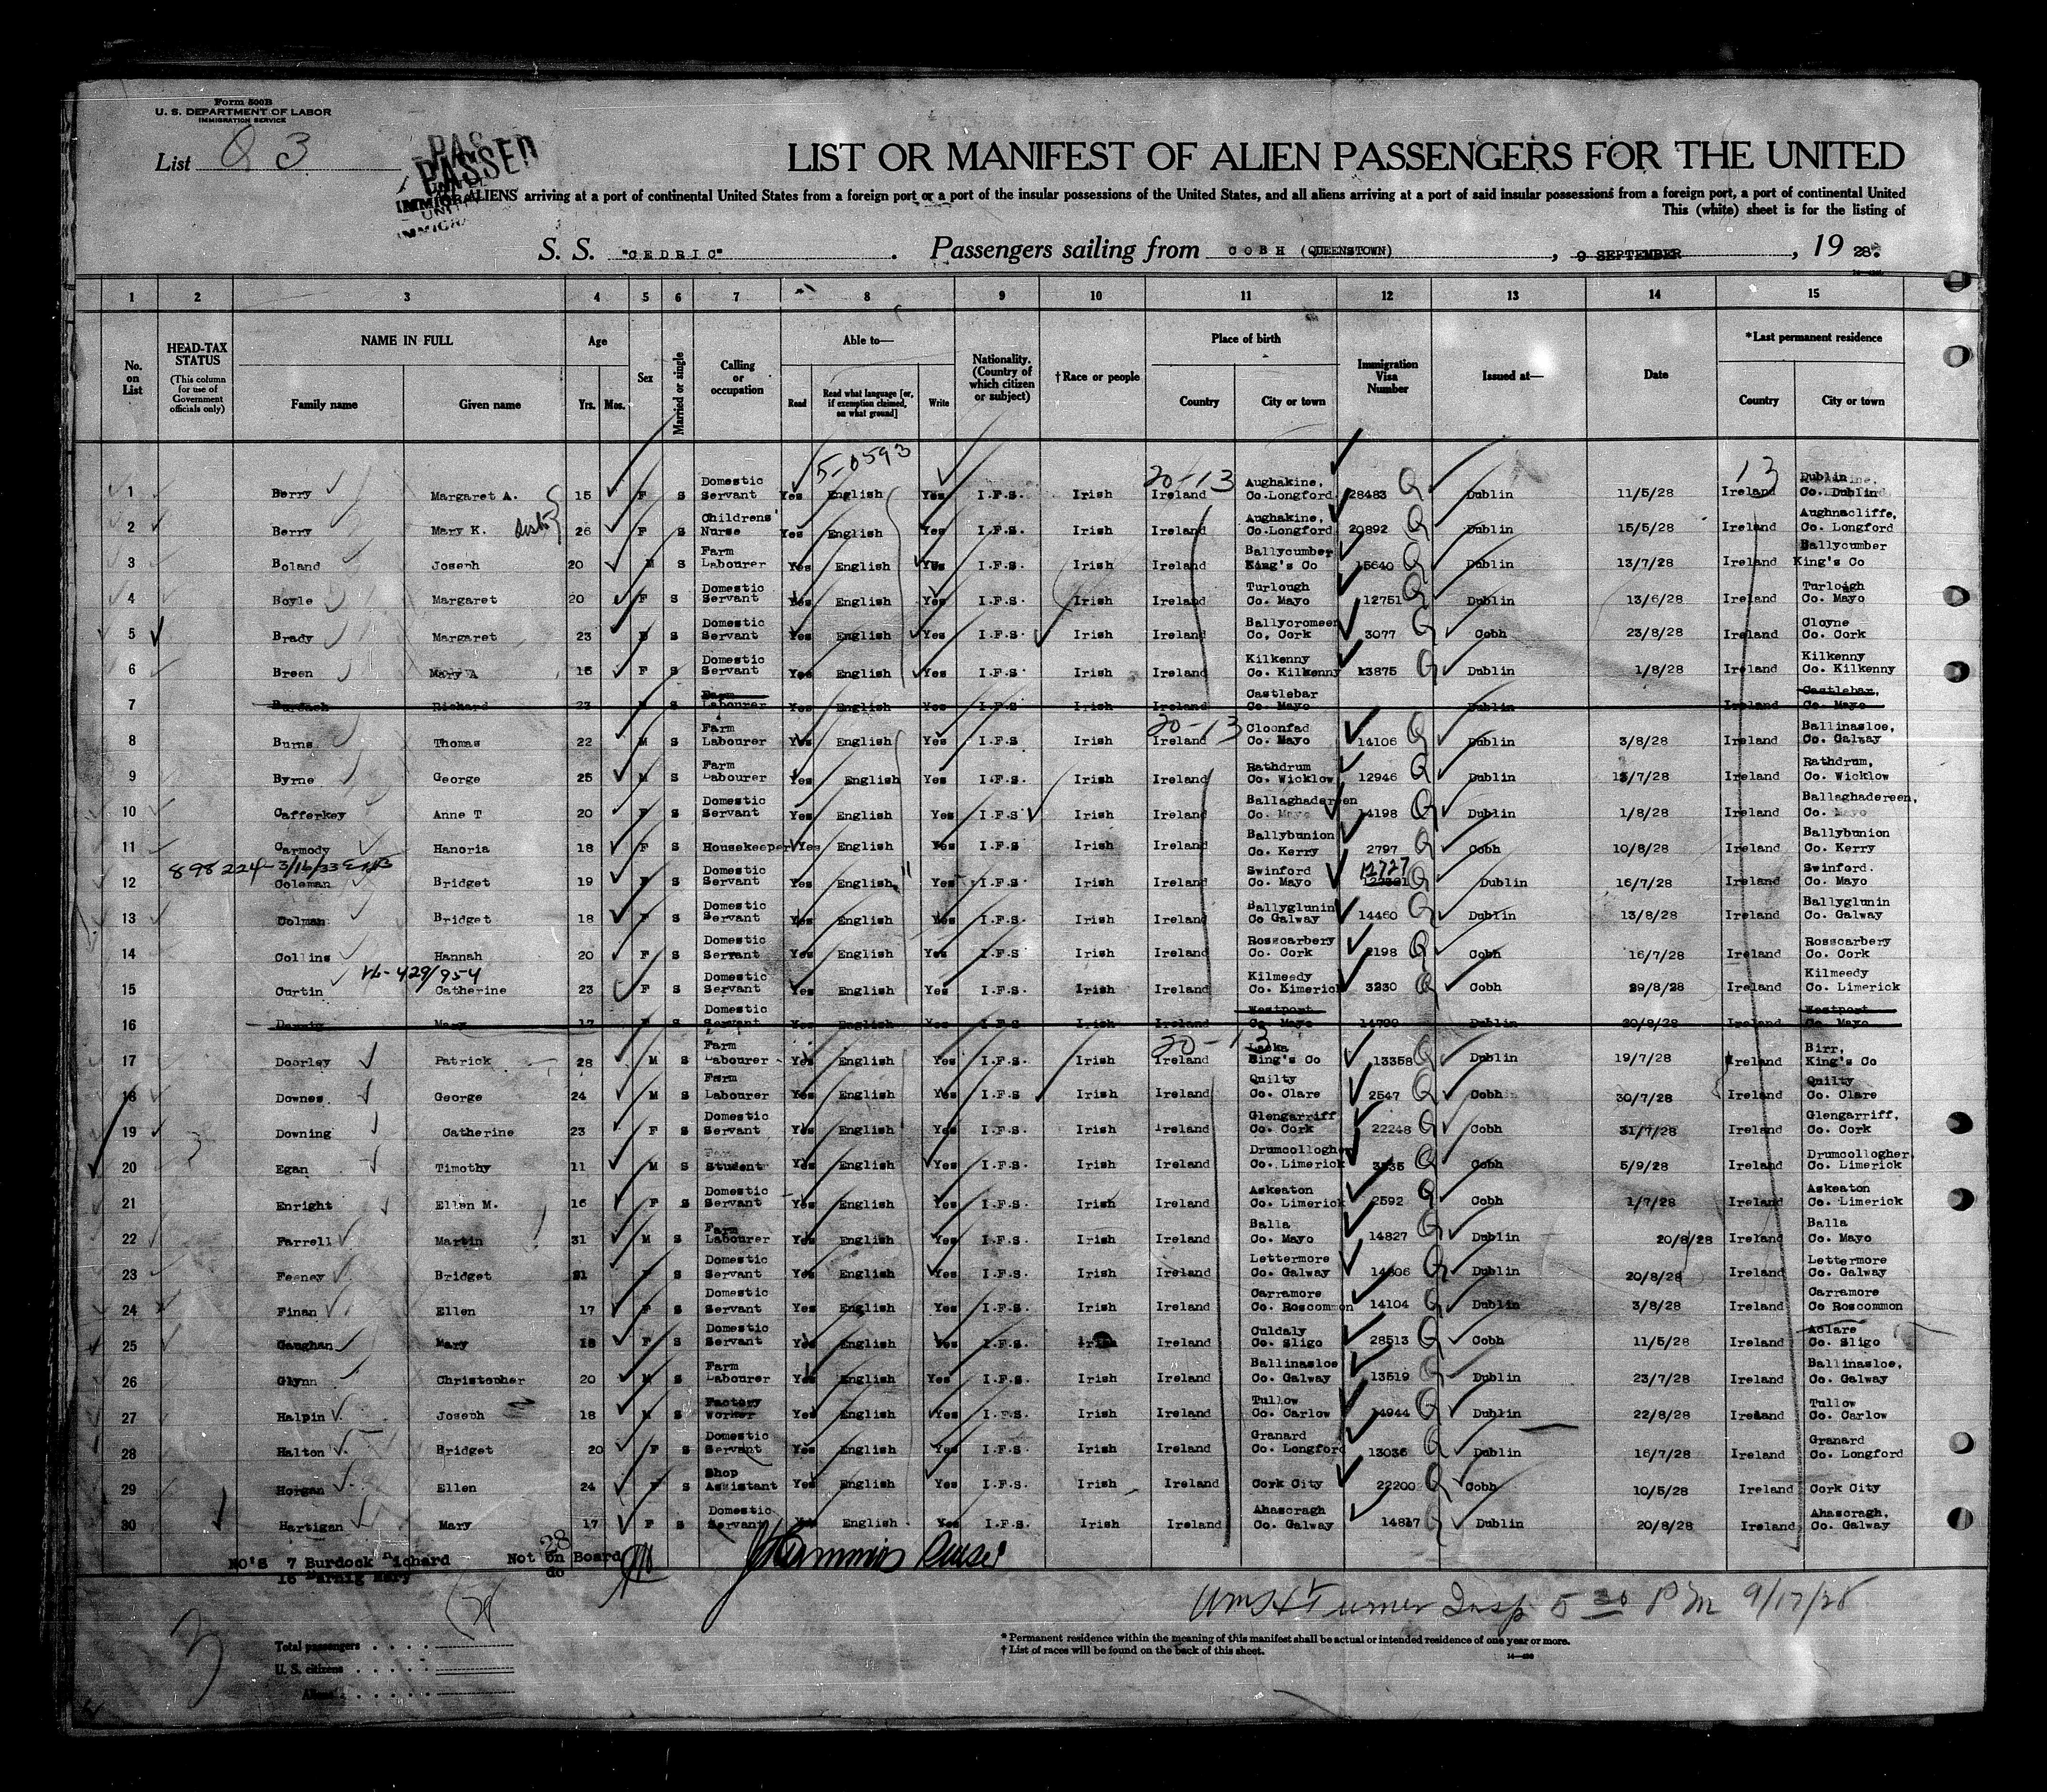 Form 500B
U. S. DEPARTMENT OF LABOR
IMMIGRATION SERVICE
List Q 3
PASSED
LIST OR MANIFEST OF ALIEN PASSENGERS FOR THE UNITED
ALIENS arriving at a port of continental United States from a foreign port or a port of the insular possessions of the United States, and all aliens arriving at a port of said insular possessions from a foreign port, a port of continental United
This (white) sheet is for the listing of
S. S. "CEDRIC" . Passengers sailing from COBH (QUEENSTOWN) , 9 SEPTEMBER , 19 28.
1 2 3 4 5 6 7 8 9 10 11 12 13 14 15
No. on List
HEAD-TAX STATUS (This column for use of Government officials only)
NAME IN FULL Family name Given name
Age Yrs. Mos.
Sex
Married or single
Calling or occupation
Able to— Read Read what language [or, if exemption claimed, on what ground] Write
Nationality. (Country of which citizen or subject)
†Race or people
Place of birth Country City or town
Immigration Visa Number
Issued at—
Date
*Last permanent residence Country City or town
5-0593 20-13 13
1 Berry Margaret A. 15 F S Domestic Servant Yes English Yes I.F.S. Irish Ireland Aughakine, Co.Longford. 28483 Q Dublin 11/5/28 Ireland Dublin Co. Dublin
2 Berry Mary K. 26 F S Childrens' Nurse Yes English Yes I.F.S. Irish Ireland Aughakine, Co.Longford. 20892 Q Dublin 15/5/28 Ireland Aughnacliffe, Co. Longford
3 Boland Joseph 20 M S Farm Labourer Yes English Yes I.F.S. Irish Ireland Ballycumber King's Co 15640 Q Dublin 13/7/28 Ireland Ballycumber King's Co
4 Boyle Margaret 20 F S Domestic Servant Yes English Yes I.F.S. Irish Ireland Turlough Co. Mayo 12751 Q Dublin 13/6/28 Ireland Turlough Co. Mayo
5 Brady Margaret 23 S Domestic Servant Yes English Yes I.F.S. Irish Ireland Ballycromeen Co. Cork 3077 Q Cobh 23/8/28 Ireland Cloyne Co. Cork
6 Breen Mary A 15 F S Domestic Servant Yes English Yes I.F.S. Irish Ireland Kilkenny Co. Kilkenny 13875 Q Dublin 1/8/28 Ireland Kilkenny Co. Kilkenny
7 Richard 23 M S Farm Labourer Yes English Yes I.F.S Irish Ireland Castlebar Co. Mayo Dublin Ireland Castlebar, Co. Mayo
20-13
8 Burns Thomas 22 M S Farm Labourer Yes English Yes I.F.S Irish Ireland Cloonfad Co. Mayo 14106 Q Dublin 3/8/28 Ireland Ballinasloe, Co. Galway
9 Byrne George 25 M S Farm Labourer Yes English Yes I.F.S Irish Ireland Rathdrum Co. Wicklow 12946 Q Dublin 13/7/28 Ireland Rathdrum, Co. Wicklow
10 Cafferkey Anne T 20 F S Domestic Servant Yes English Yes I.F.S Irish Ireland Ballaghadereen Co. Mayo 14198 Q Dublin 1/8/28 Ireland Ballaghadereen, Co. Mayo
11 Carmody Hanoria 18 F S Housekeeper Yes English Yes I.F.S. Irish Ireland Ballybunion Co. Kerry 2797 Q Cobh 10/8/28 Ireland Ballybunion Co. Kerry
898224-3/16/33
12 Coleman Bridget 19 F S Domestic Servant Yes English Yes I.F.S. Irish Ireland Swinford Co. Mayo 12727 Q Dublin 16/7/28 Ireland Swinford. Co. Mayo
13 Colman Bridget 18 F S Domestic Servant Yes English Yes I.F.S. Irish Ireland Ballyglunin Co Galway 14460 Q Dublin 13/8/28 Ireland Ballyglunin Co. Galway
14 Collins Hannah 20 F S Domestic Servant Yes English Yes I.F.S Irish Ireland Rosscarbery Co. Cork 2198 Q Cobh 16/7/28 Ireland Rosscarbery Co. Cork
16-429/954
15 Curtin Catherine 23 F S Domestic Servant Yes English Yes I.F.S. Irish Ireland Kilmeedy Co. Kimerick 3230 Q Cobh 29/8/28 Ireland Kilmeedy Co. Limerick
16 Mary 17 F S Domestic Servant Yes English Yes I.F.S Irish Ireland Westport Co. Mayo Dublin 20/8/28 Ireland Westport Co. Mayo
20-13
17 Doorley Patrick 28 M S Farm Labourer Yes English Yes I.F.S. Irish Ireland King's Co 13358 Q Dublin 19/7/28 Ireland Birr, King's Co
18 Downes George 24 M S Farm Labourer Yes English Yes I.F.S Irish Ireland Quilty Co. Clare 2547 Q Cobh 30/7/28 Ireland Quilty Co. Clare
19 Downing Catherine 23 F S Domestic Servant Yes English Yes I.F.S. Irish Ireland Glengarriff Co. Cork 22248 Q Cobh 31/7/28 Ireland Glengarriff, Co. Cork
20 Egan Timothy 11 M S Student Yes English Yes I.F.S. Irish Ireland Drumcollogher Co. Limerick Q Cobh 5/9/28 Ireland Drumcollogher Co. Limerick
21 Enright Ellen M. 16 F S Domestic Servant Yes English Yes I.F.S. Irish Ireland Askeaton Co. Limerick 2592 Q Cobh 1/7/28 Ireland Askeaton Co. Limerick
22 Farrell Martin 31 M S Farm Labourer Yes English Yes I.F.S. Irish Ireland Balla Co. Mayo 14827 Q Dublin 20/8/28 Ireland Balla Co. Mayo
23 Feeney Bridget 21 F S Domestic Servant Yes English Yes I.F.S. Irish Ireland Lettermore Co. Galway 14606 Q Dublin 20/8/28 Ireland Lettermore Co. Galway
24 Finan Ellen 17 F S Domestic Servant Yes English Yes I.F.S. Irish Ireland Carramore Co. Roscommon 14104 Q Dublin 3/8/28 Ireland Carramore Co Roscommon
25 Gaughan Mary 18 F S Domestic Servant Yes English Yes I.F.S. Irish Ireland Culdaly Co. Sligo 28513 Q Cobh 11/5/28 Ireland Aclare Co. Sligo
26 Glynn Christopher 20 M S Farm Labourer Yes English Yes I.F.S. Irish Ireland Ballinasloe Co. Galway 13519 Q Dublin 23/7/28 Ireland Ballinasloe, Co. Galway
27 Halpin Joseph 18 M S Factory Worker Yes English Yes I.F.S. Irish Ireland Tullow Co. Carlow 14944 Q Dublin 22/8/28 Ireland Tullow Co. Carlow
28 Halton Bridget 20 F S Domestic Servant Yes English Yes I.F.S. Irish Ireland Granard Co. Longford 13036 Q Dublin 16/7/28 Ireland Granard Co. Longford
29 Horgan Ellen 24 F S Shop Assistant Yes English Yes I.F.S. Irish Ireland Cork City 22200 Q Cobh 10/5/28 Ireland Cork City
30 Hartigan Mary 17 F S Domestic Servant Yes English Yes I.F.S. Irish Ireland Ahascragh Co. Galway 14817 Q Dublin 20/8/28 Ireland Ahascragh, Co. Galway
NO'S 7 Burdock Richard Not on Board
16 Mary do
28
Wm H Turner Insp 5 30 P M 9/17/28
Total passengers . . . .
U. S. citizens . . . . .
Aliens . . . . .
* Permanent residence within the meaning of this manifest shall be actual or intended residence of one year or more.
† List of races will be found on the back of this sheet.